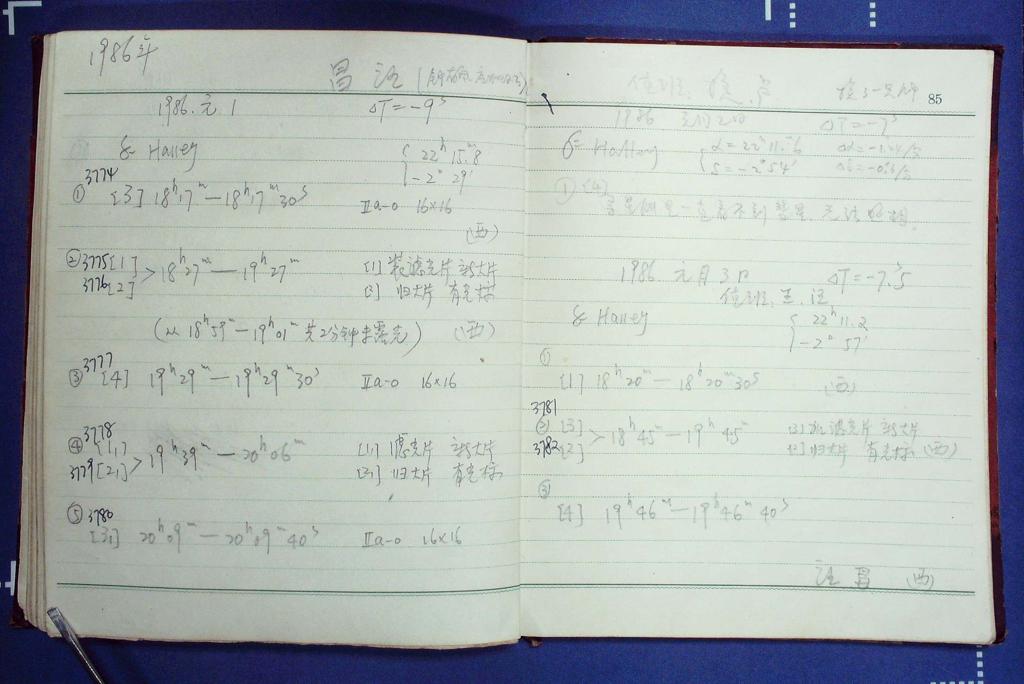 1986年
1986.元 1 ΔT=-9ˢ
Halley { 22ʰ 15.ᵐ8
-2° 29′
3774
① [3] 18ʰ17ᵐ — 18ʰ17ᵐ30ˢ IIa-o 16×16
(西)
② 3775 [1] > 18ʰ27ᵐ — 19ʰ27ᵐ [1] 滤光片 新大片
3776 [2] 旧大片 有光标
(从 18ʰ59ᵐ — 19ʰ01ᵐ 共2分钟未露光) (西)
3777
③ [4] 19ʰ29ᵐ — 19ʰ29ᵐ30ˢ IIa-o 16×16
3778
④ [1] > 19ʰ39ᵐ — 20ʰ06ᵐ [1] 滤光片 新大片
3779 [2] [2] 旧大片 有光标
⑤ 3780
[3] 20ʰ09ᵐ — 20ʰ09ᵐ40ˢ IIa-o 16×16
85
1986 元月2日 ΔT=-7ˢ
Halley { α=22ʰ11.ᵐ6
δ=-2°54′
① [4]
彗星 看不到彗星,无法
1986 元月3日 ΔT=-7.ˢ5
值班:王、汪
Halley { 22ʰ11.2
-2° 57′
①
[1] 18ʰ20ᵐ — 18ʰ20ᵐ30ˢ (西)
3781
② [3] > 18ʰ45ᵐ — 19ʰ45ᵐ [3] 滤光片 新大片
3782 [2] [2] 旧大片 有光标 (西)
③
[4] 19ʰ46ᵐ — 19ʰ46ᵐ40ˢ
汪 冒 (西)